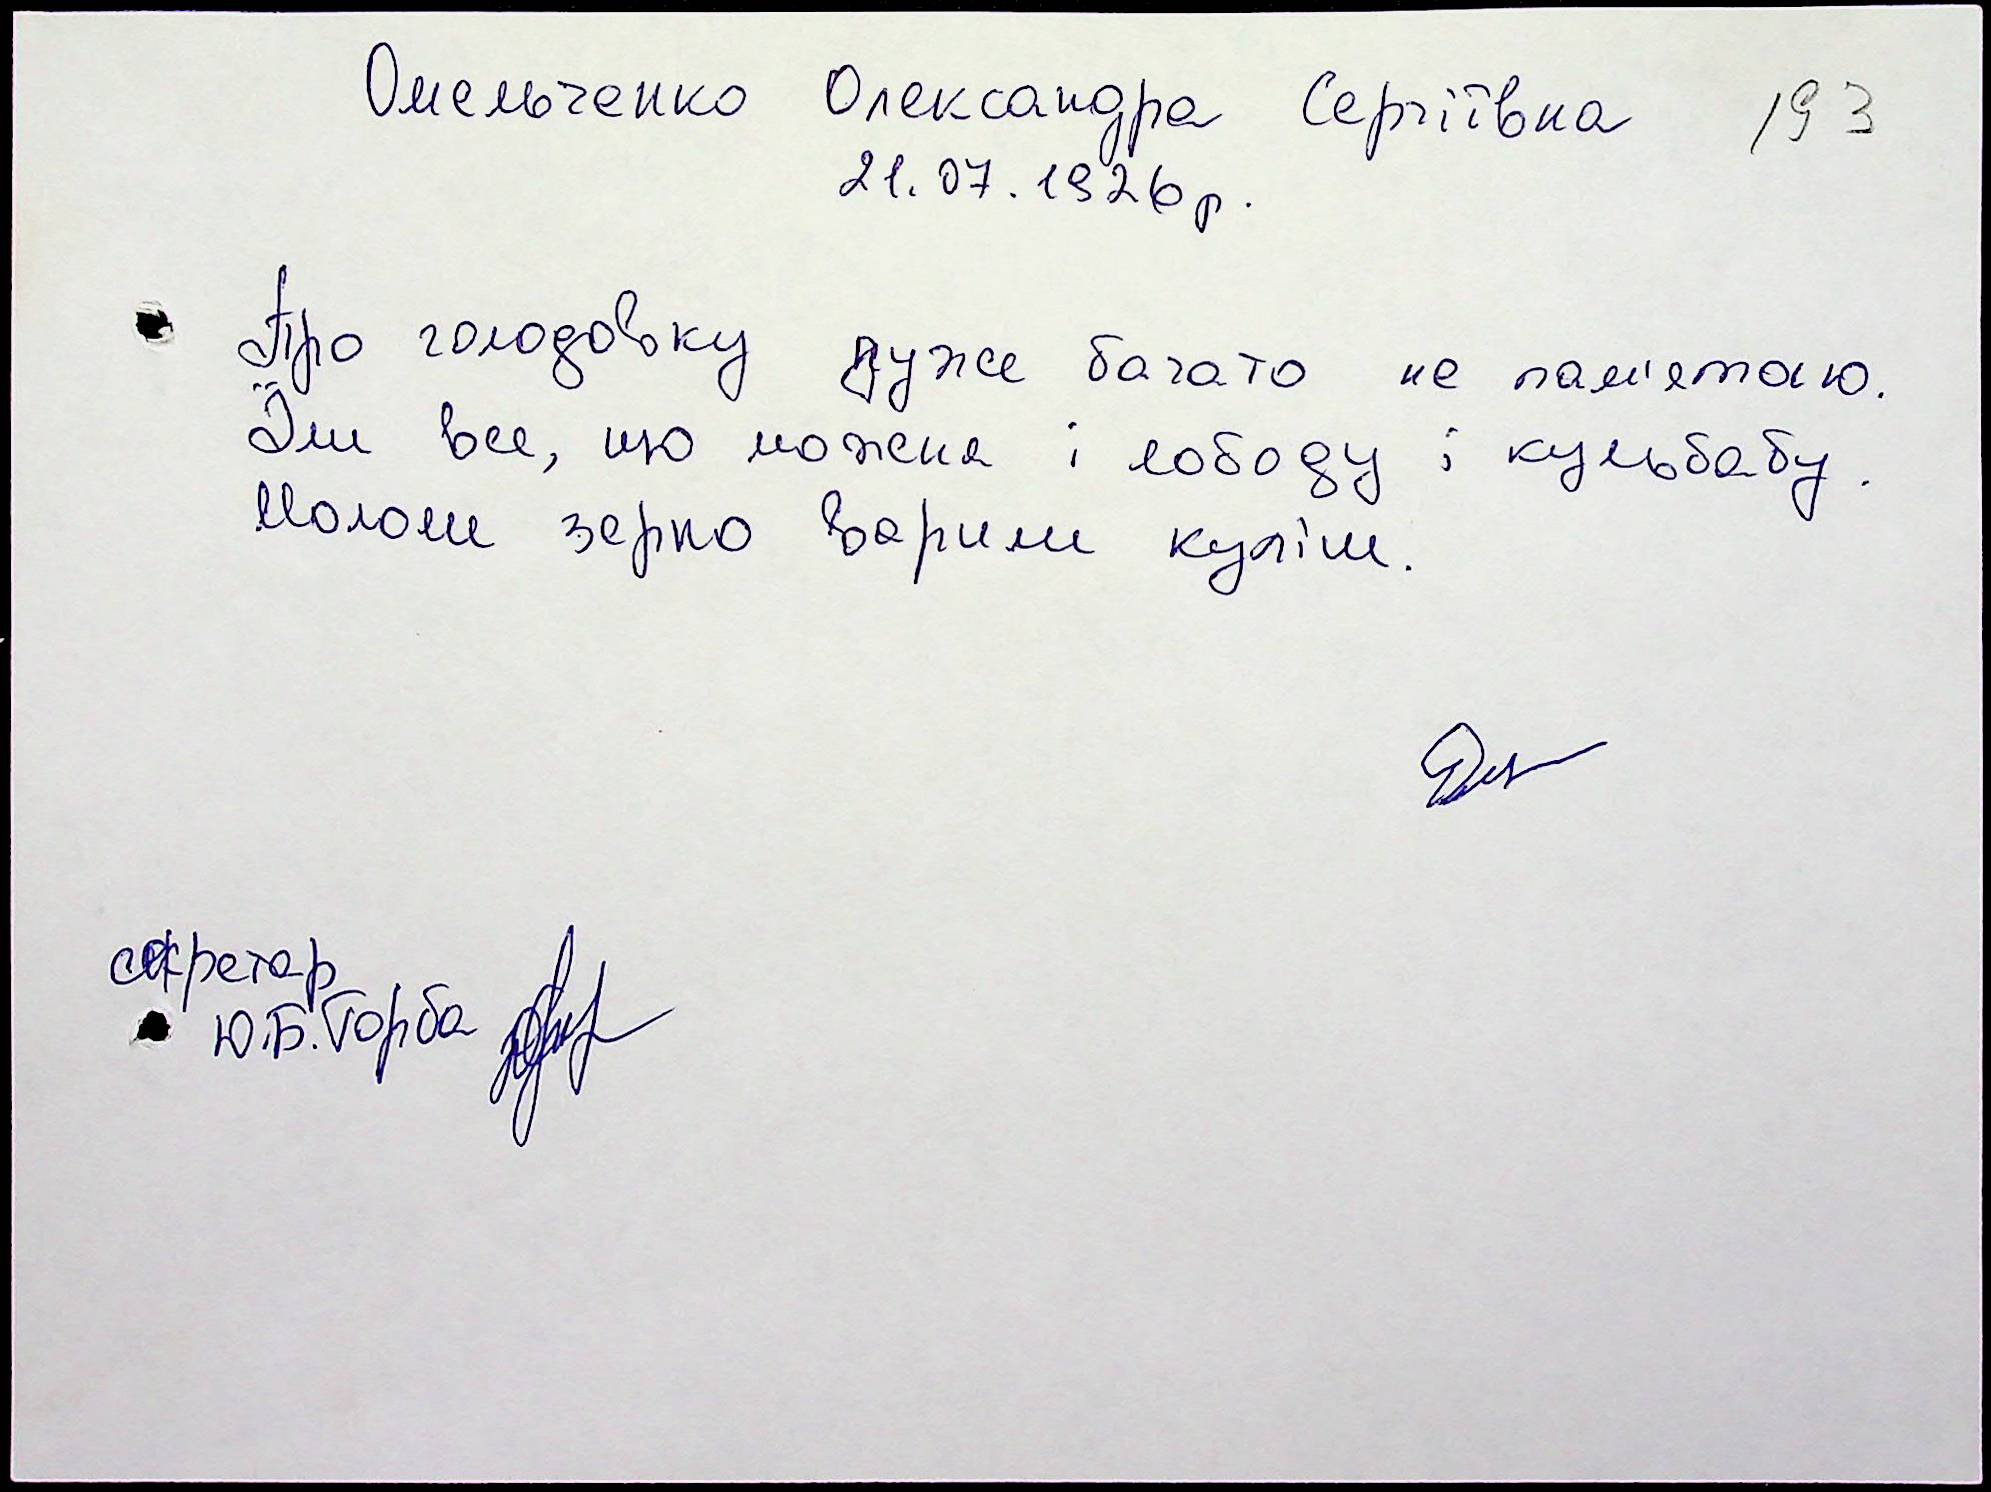 Омельченко Олександра Сергіївна 193
21.07.1926 р.
Про голодовку дуже багато не пам'ятаю.
Їли все, що можна і лободу і кульбабу.
Мололи зерно варили куліш.
секретар
Ю.Б. Горба